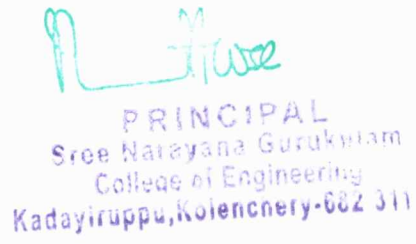 PRINCIPAL
Sree Narayana Gurukulam
College of Engineering
Kadayiruppu,Kolenchery-682 311